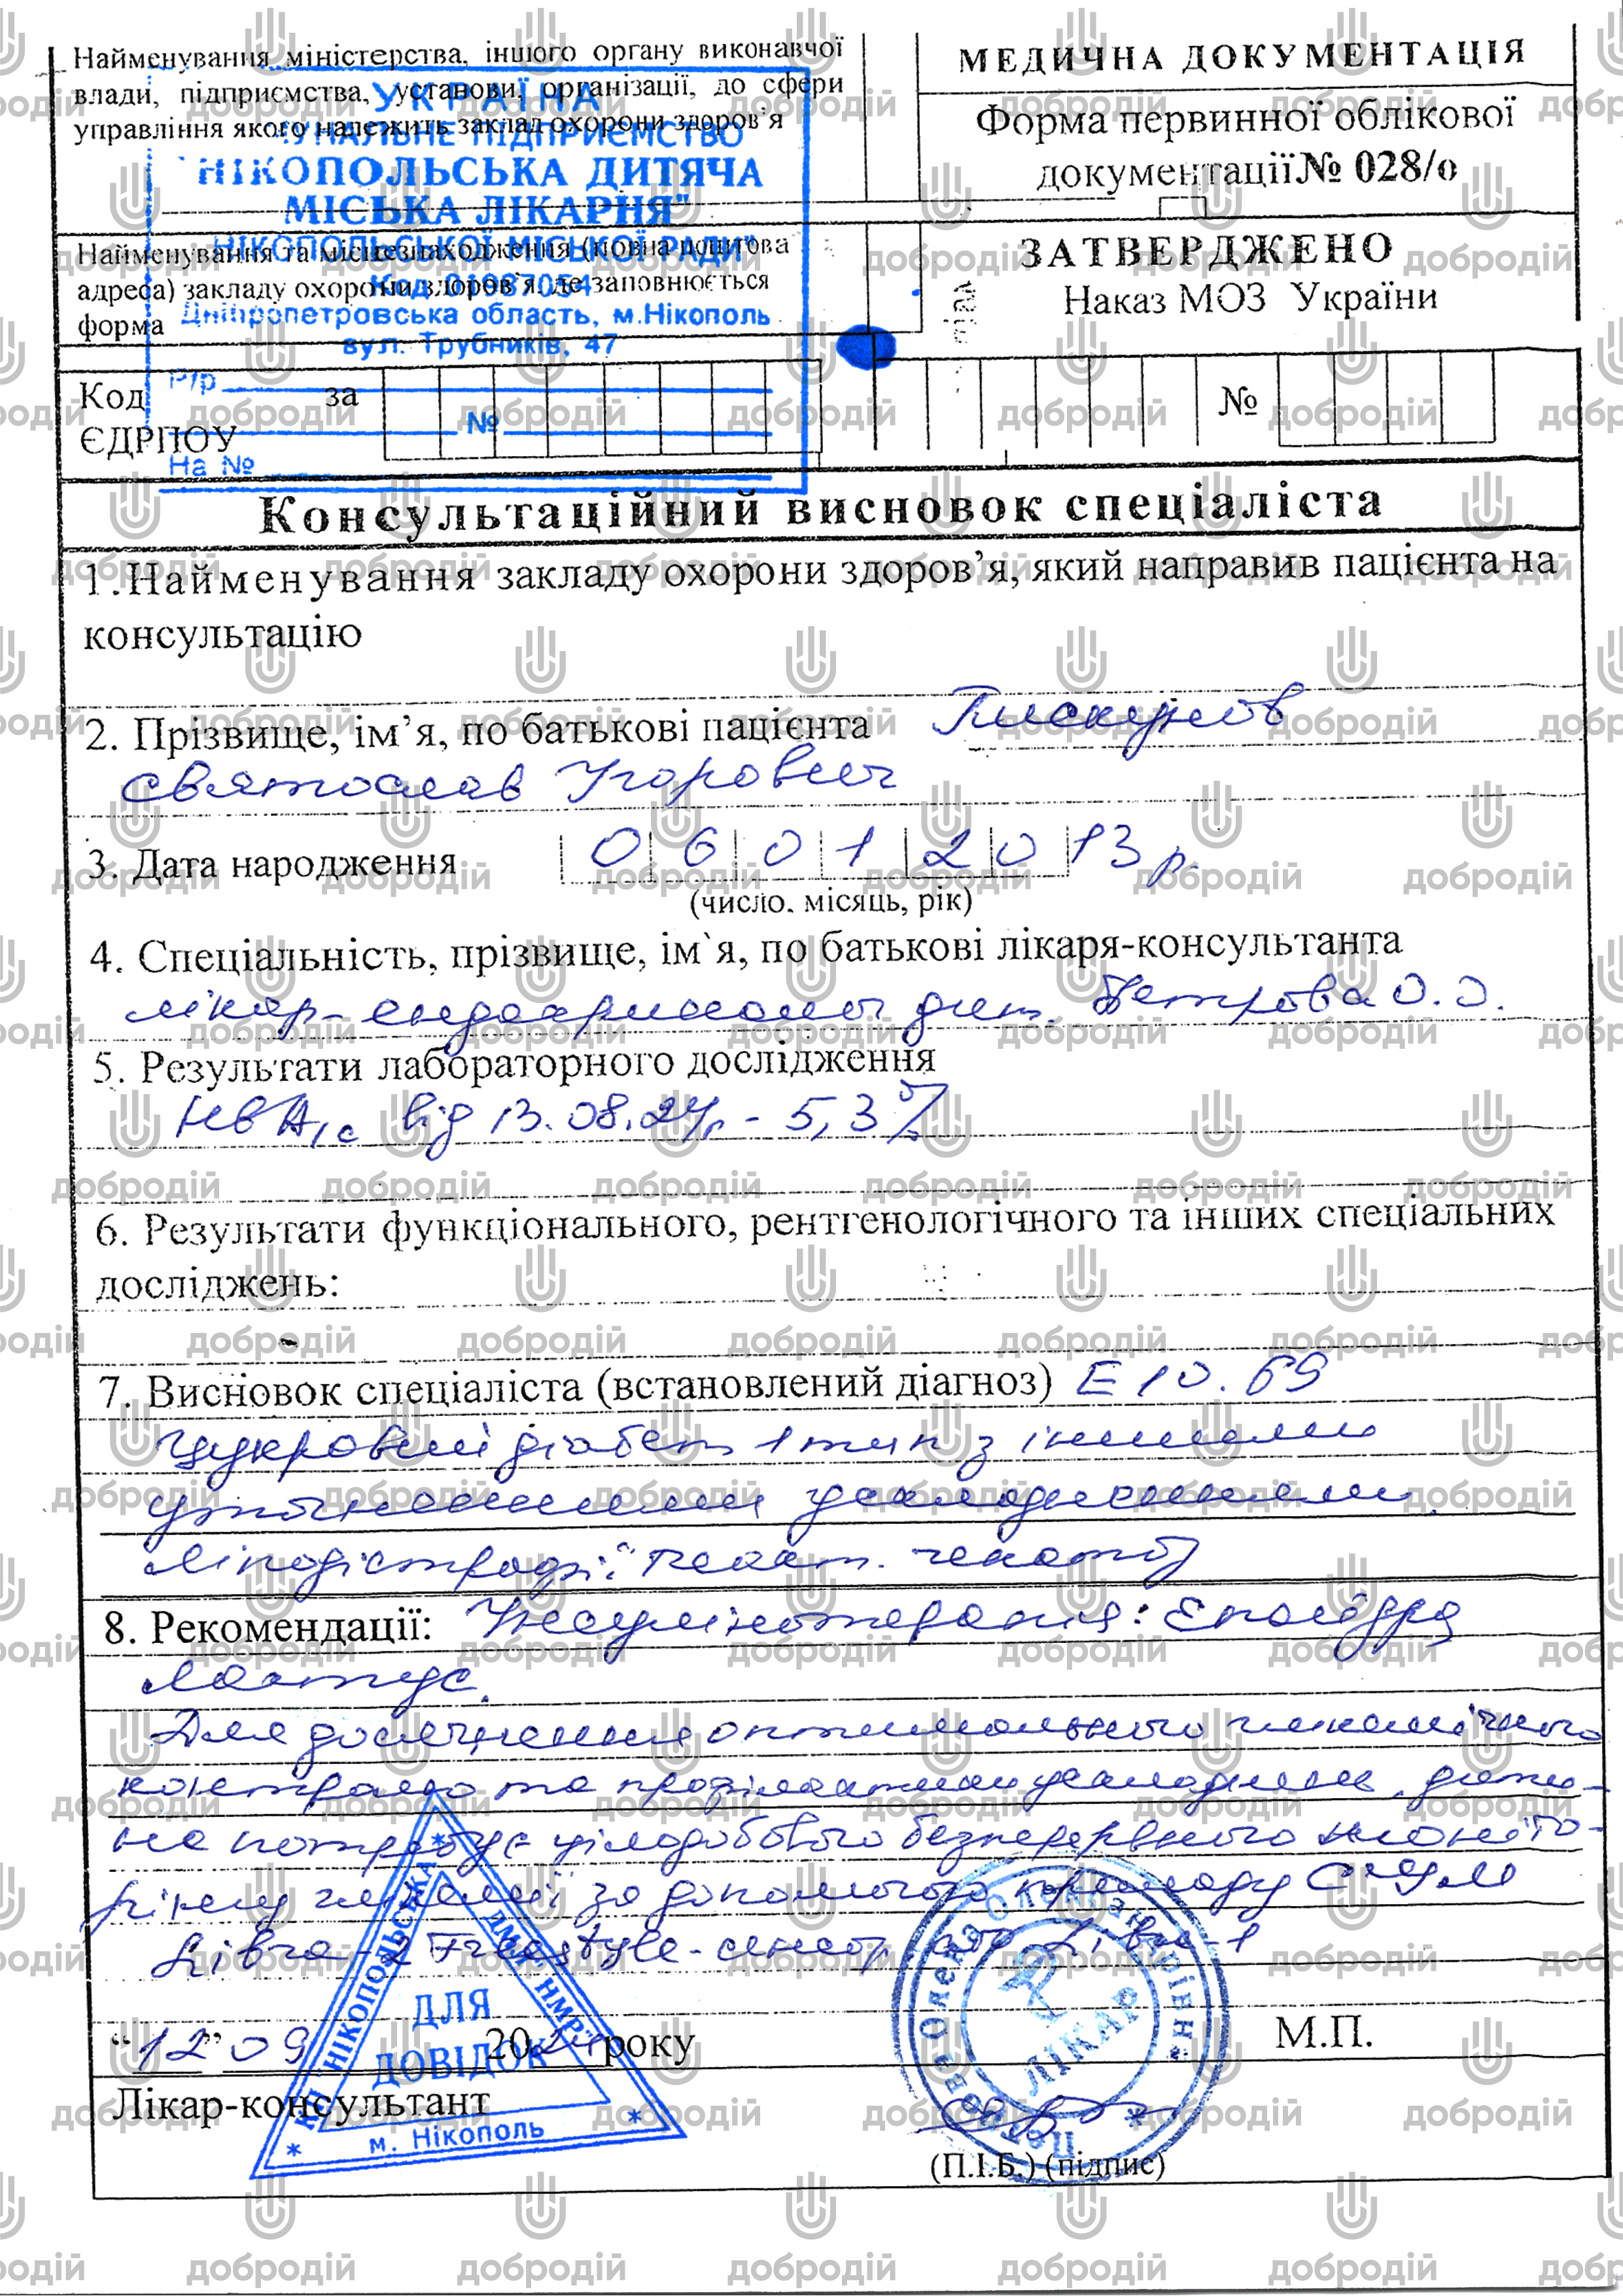 Найменування міністерства, іншого органу виконавчої
влади, підприємства, установи, організації, до сфери
управління якого належить заклад охорони здоров'я
УКРАЇНА
УНАЛЬНЕ ПІДПРИЄМСТВО
"НІКОПОЛЬСЬКА ДИТЯЧА
МІСЬКА ЛІКАРНЯ"
НІКОПОЛЬСЬКОЇ МІСЬКОЇ РАДИ"
Код 01987054
Дніпропетровська область, м.Нікополь
вул. Трубників, 47
Р/р
№
На №
МЕДИЧНА ДОКУМЕНТАЦІЯ
Форма первинної облікової
документації № 028/о
Найменування та місцезнаходження (повна поштова
адреса) закладу охорони здоров'я, де заповнюється
форма
ЗАТВЕРДЖЕНО
Наказ МОЗ України
Код за
ЄДРПОУ
№
Консультаційний висновок спеціаліста
1.Найменування закладу охорони здоров'я, який направив пацієнта на
консультацію
2. Прізвище, ім'я, по батькові пацієнта Пискунов
Святослав Ігорович
3. Дата народження 06012013р.
(число, місяць, рік)
4. Спеціальність, прізвище, ім`я, по батькові лікаря-консультанта
лікар-ендокринолог дит. Петрова О.О.
5. Результати лабораторного дослідження
HbA1c від 13.08.24р - 5,3%
6. Результати функціонального, рентгенологічного та інших спеціальних
досліджень:
-
7. Висновок спеціаліста (встановлений діагноз) E 10.69
Цукровий діабет 1 тип з іншими
уточненими ускладненнями.
Ліподістрофії
8. Рекомендації: Інсулінотерапія: Епайдра
Лантус.
Для досягнення оптимального глікемічного
контролю та профілактики ускладнень, дити-
на потребує цілодобового безперервного моніто-
рингу глікемії за допомогою приладу
Libre-2 Freestyle-сенсор або Libre-1
"12" 09 2024 року
М.П.
Лікар-консультант
(П.І.Б.) (підпис)
КП "НІКОПОЛЬСЬКА ДМЛ" НМР"
ДЛЯ
ДОВІДОК
м. Нікополь
Петрова Олена Олександрівна
ЛІКАР
добродій